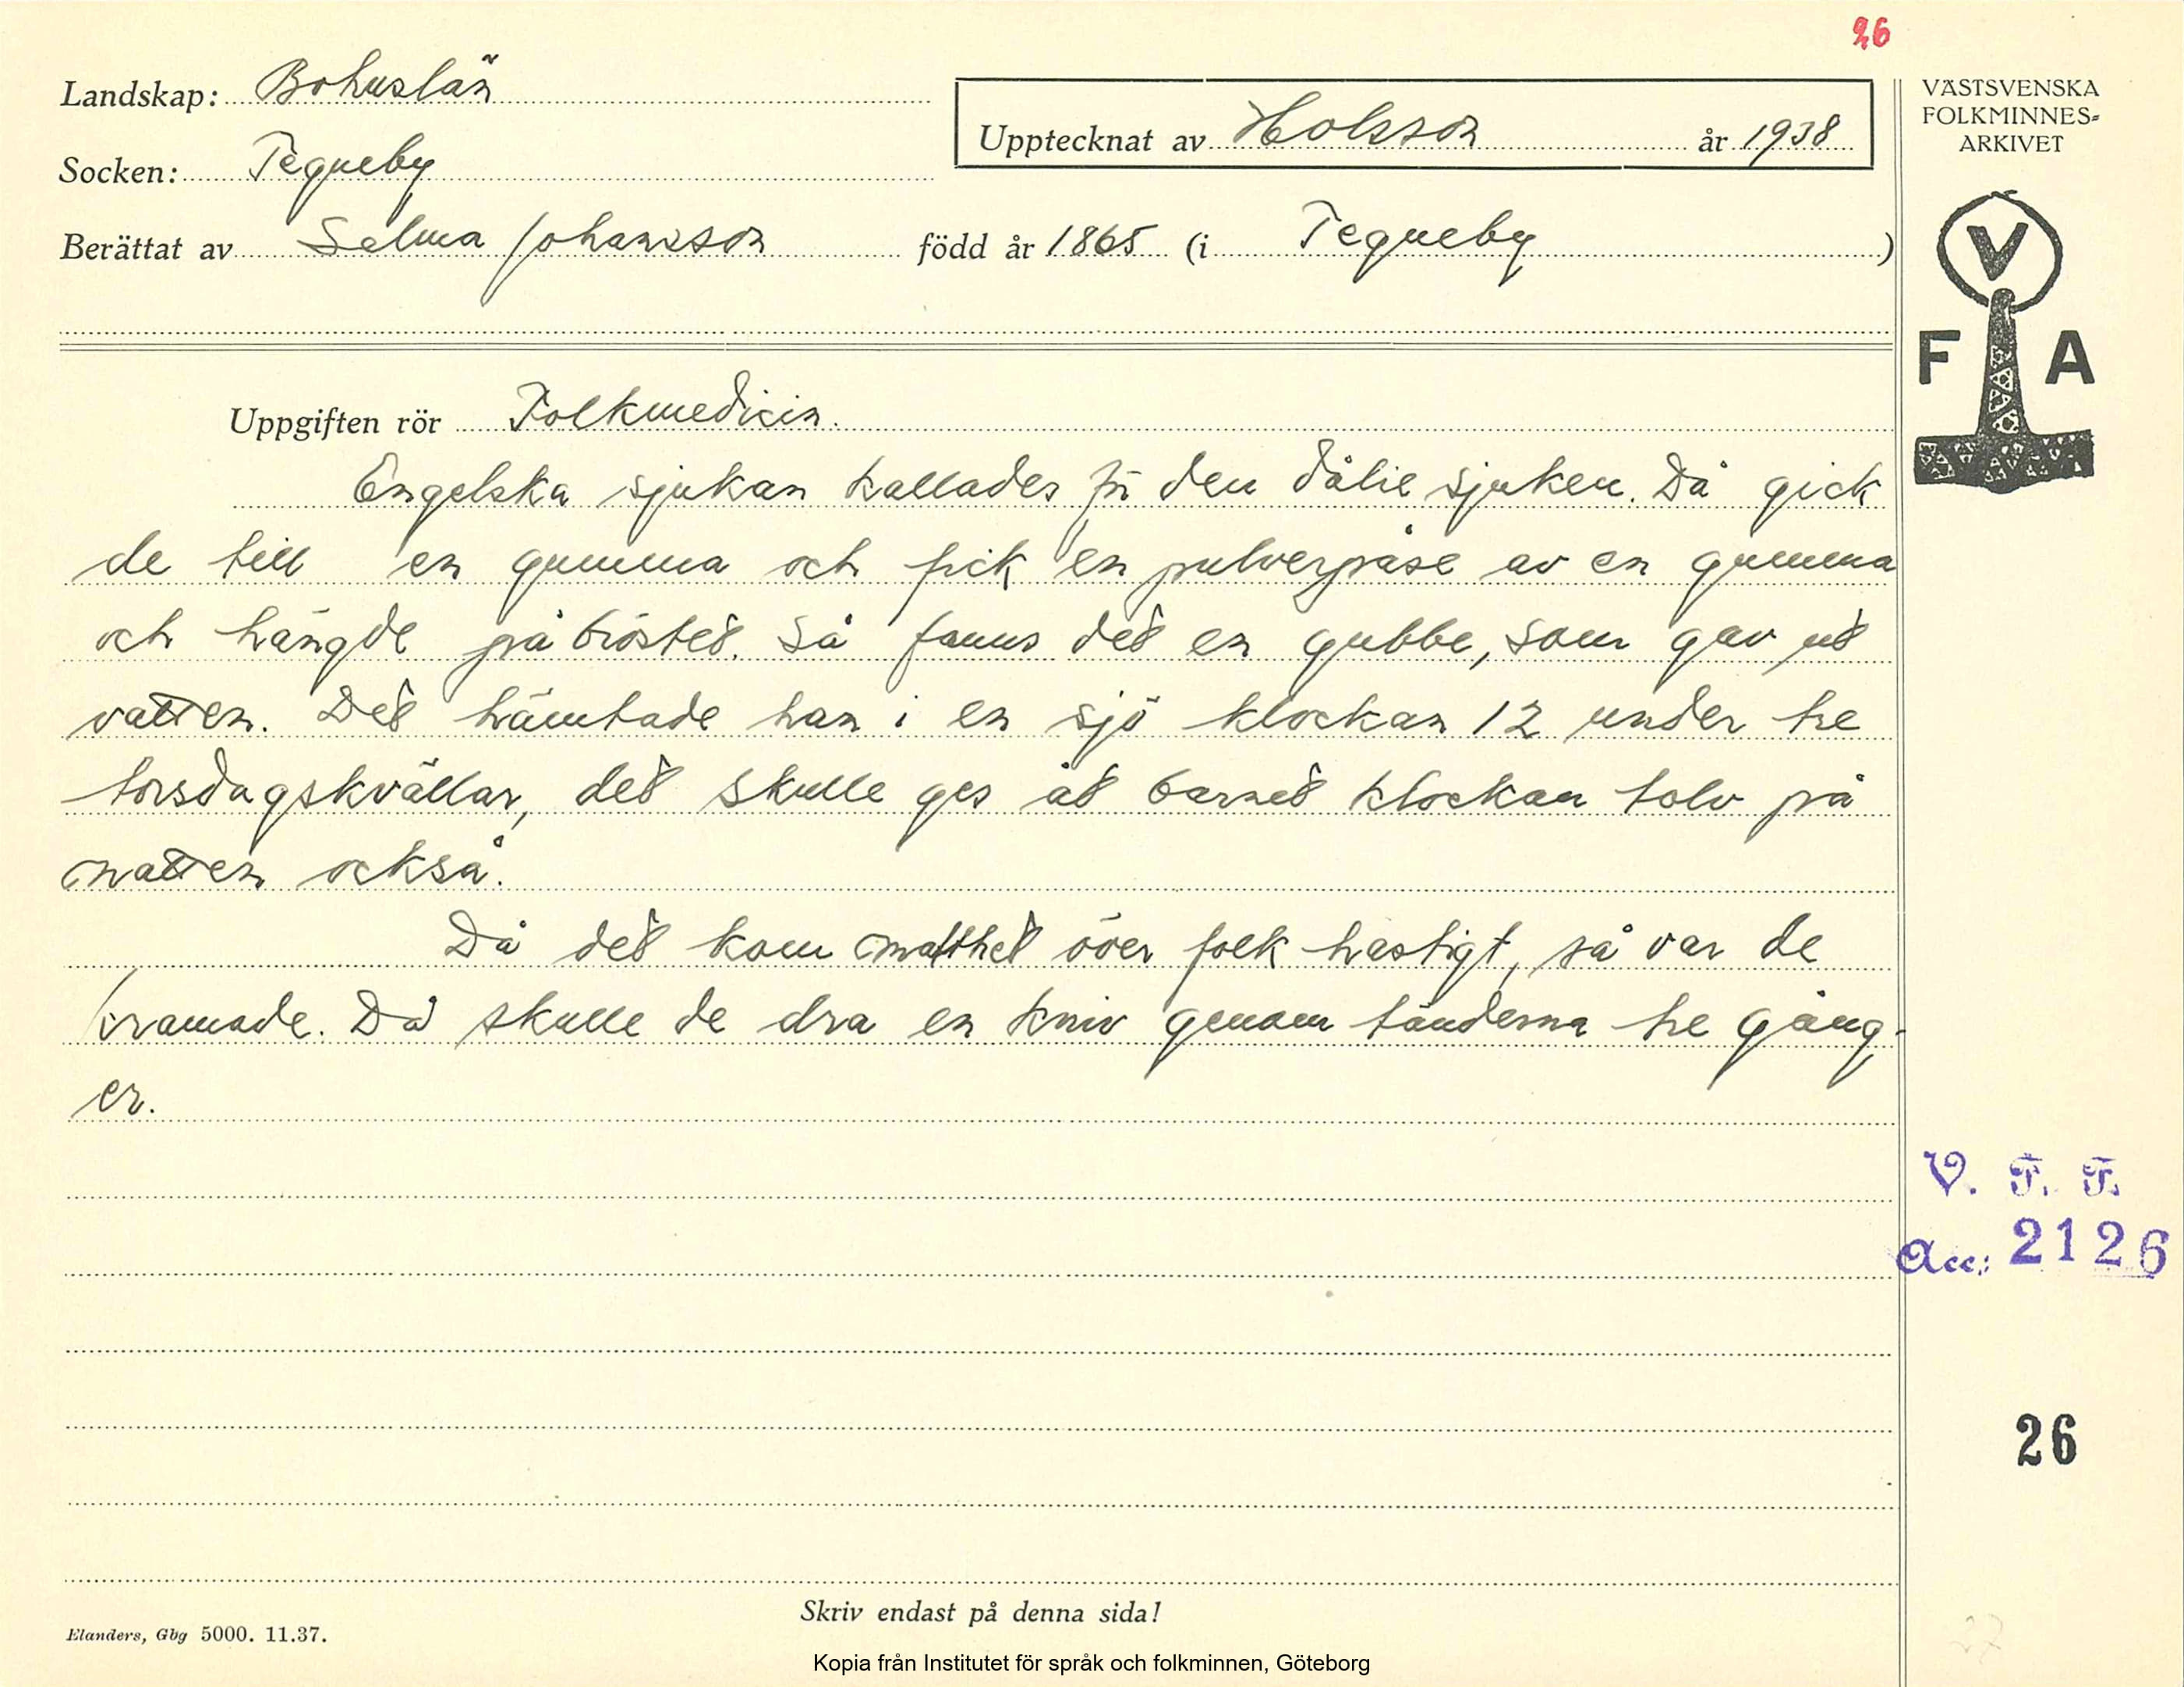 26
Landskap: Bohuslän
Upptecknat av Holsson år 1938
VÄSTSVENSKA
FOLKMINNES=
ARKIVET
Socken: Tegneby
Berättat av Selma Johansson född år 1865 (i Tegneby)
V
F A
Uppgiften rör Folkmedicin.
Engelska sjukan kallades för den dålie sjuken. Då gick
de till en gumma och fick en pulverpåse av en gumma
och hängde på bröstet. Så fanns det en gubbe, som gav ut
vatten. Det hämtade han i en sjö klockan 12 under tre
torsdagskvällar, det skulle ges åt barnet klockan tolv på
natten också.
Då det kom matthet över folk hastigt, så var de
kramade. Då skulle de dra en kniv genom tänderna tre gång-
er.
V. F. F.
Acc: 2126
26
Skriv endast på denna sida!
Elanders, Gbg 5000. 11.37.
Kopia från Institutet för språk och folkminnen, Göteborg